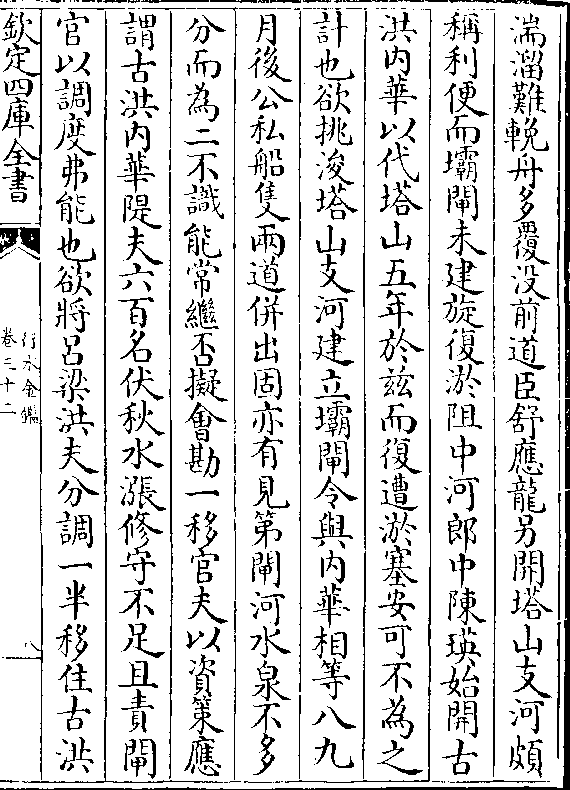 湍溜難輓舟多覆没前道臣舒應龍另開塔山支河頗
稱利便而壩閘未建旋復淤阻中河郎中陳瑛始開古
洪内華以代塔山五年於兹而復遭淤塞安可不為之
計也欲挑浚塔山支河建立壩閘令與内華相等八九
月後公私船隻兩道併出固亦有見第閘河水泉不多
分而為二不識能常繼否擬會勘一移官夫以資策應
謂古洪内華隄夫六百名伏秋水漲修守不足且責閘
官以調度弗能也欲將吕梁洪夫分調一半移住古洪
欽定四庫全書
行水金鑑
卷三十二
八